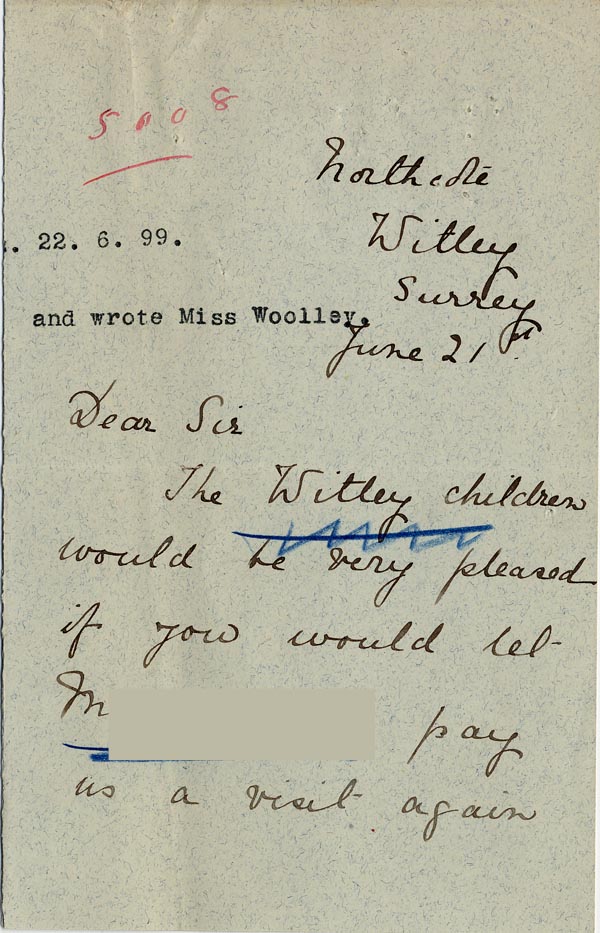 5008
Northcote
Witley
22. 6. 99.
Surrey
and wrote Miss Woolley.
June 21st.
Dear Sir
The Witley children
would be very pleased
if you would let
pay
us a visit again